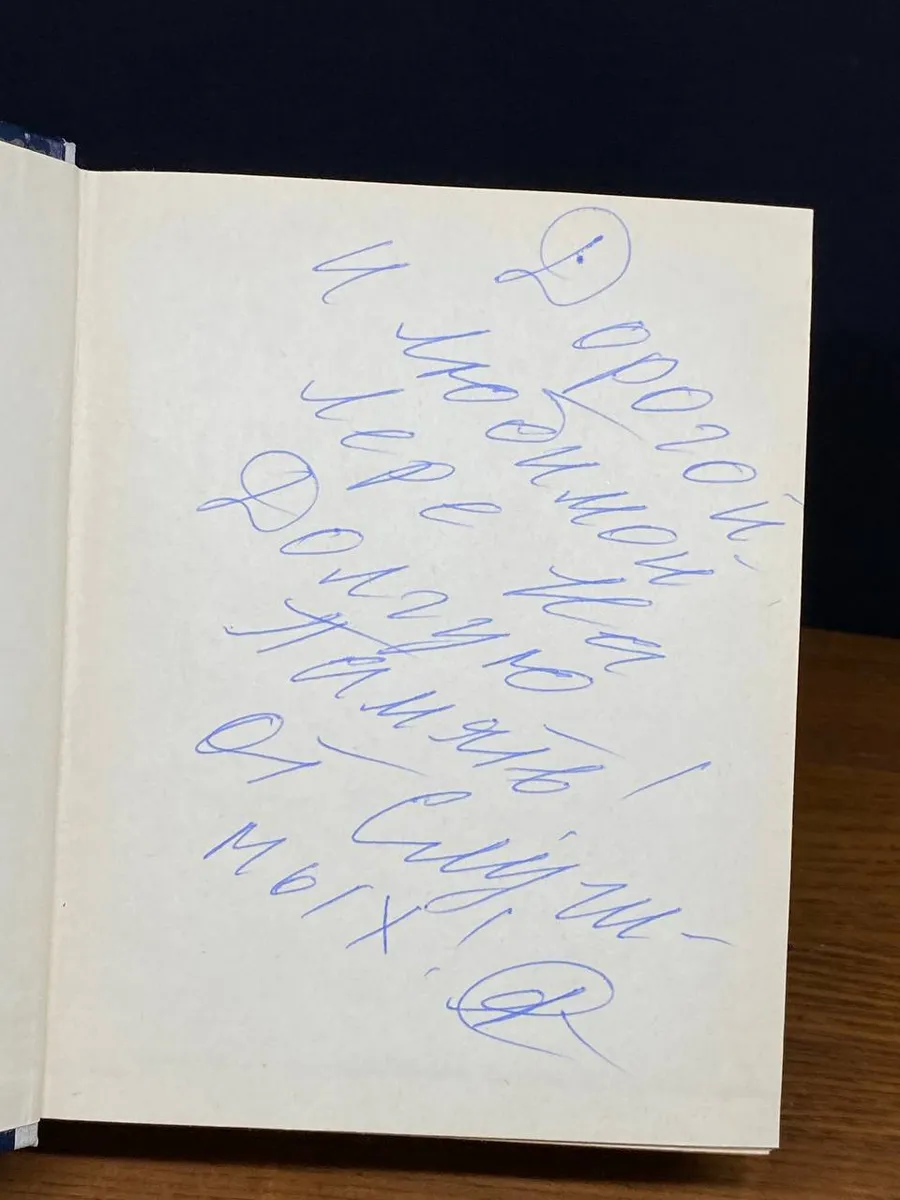 Дорогой
и любимой
Лере на
Долгую
Память!
От Слуш-
мых!